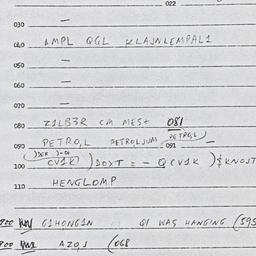 022
030 —
040 AMPL QGL KLAJNLEMPAL1
050 —
060 —
070 —
080 Z1LB3R CM MES+ 081
090 PETRO,L PETROLJUM PETRGL) 091 —
100 CV1K) )DOXT = - Q CV1K )
110 HENGLOMP
G1HONG1N G1 WAS HANGING (595
AZO,S (068